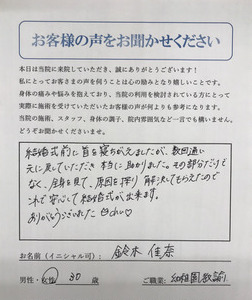 お客様の声をお聞かせください
本日は当院に来院していただき、誠にありがとうございます！
私にとってお客さまの声を伺うことは心の励みとなり嬉しいことです。
身体の痛みや悩みを抱えており、当院の利用を検討されている方にとって
実際に施術を受けていただいたお客様の声が何よりも参考になります。
当院の施術、スタッフ、身体の調子、院内雰囲気など一言でも構いません。
どうぞお聞かせくださいませ。
結婚式前に首を寝ちがえましたが、数回通い
元に戻していただき本当に助かりました。その部分だけで
なく、全身を見て、原因を探り解決してもらえたので
これで安心して結婚式が出来ます。
ありがとうございました
お名前（イニシャル可）： 鈴木 佳奈
男性・女性 30 歳 ご職業： 幼稚園教諭